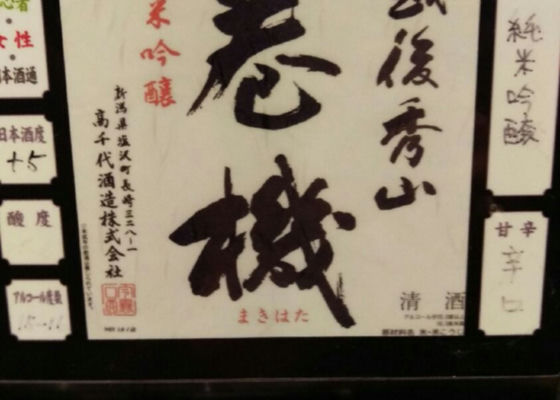 越後秀山
巻機
まきはた
米吟醸
新潟県塩沢町長崎三二八ー一
高千代酒造株式会社
清酒
女性
日本酒通
日本酒度
+5
酸度
アルコール度数
純米吟醸
甘辛
辛口